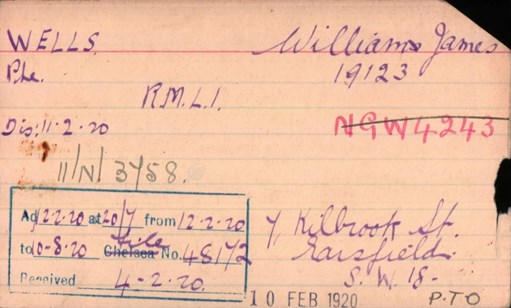 WELLS. William James
Pte. 19123
R.M.L.I.
Dis: 11-2-20 NGW4243
11/N/3458.
Ad 12-2-20 at 20/7 from 12-2-20
to 10-8-20 Chelsea No. 48172
Received 4-2-20.
7, Kilbrook St.
Earsfield.
S.W. 18-
10 FEB 1920 P.T.O